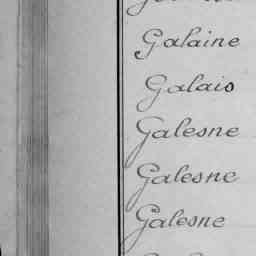 Galaine
Galais
Galesne
Galesne
Galesne